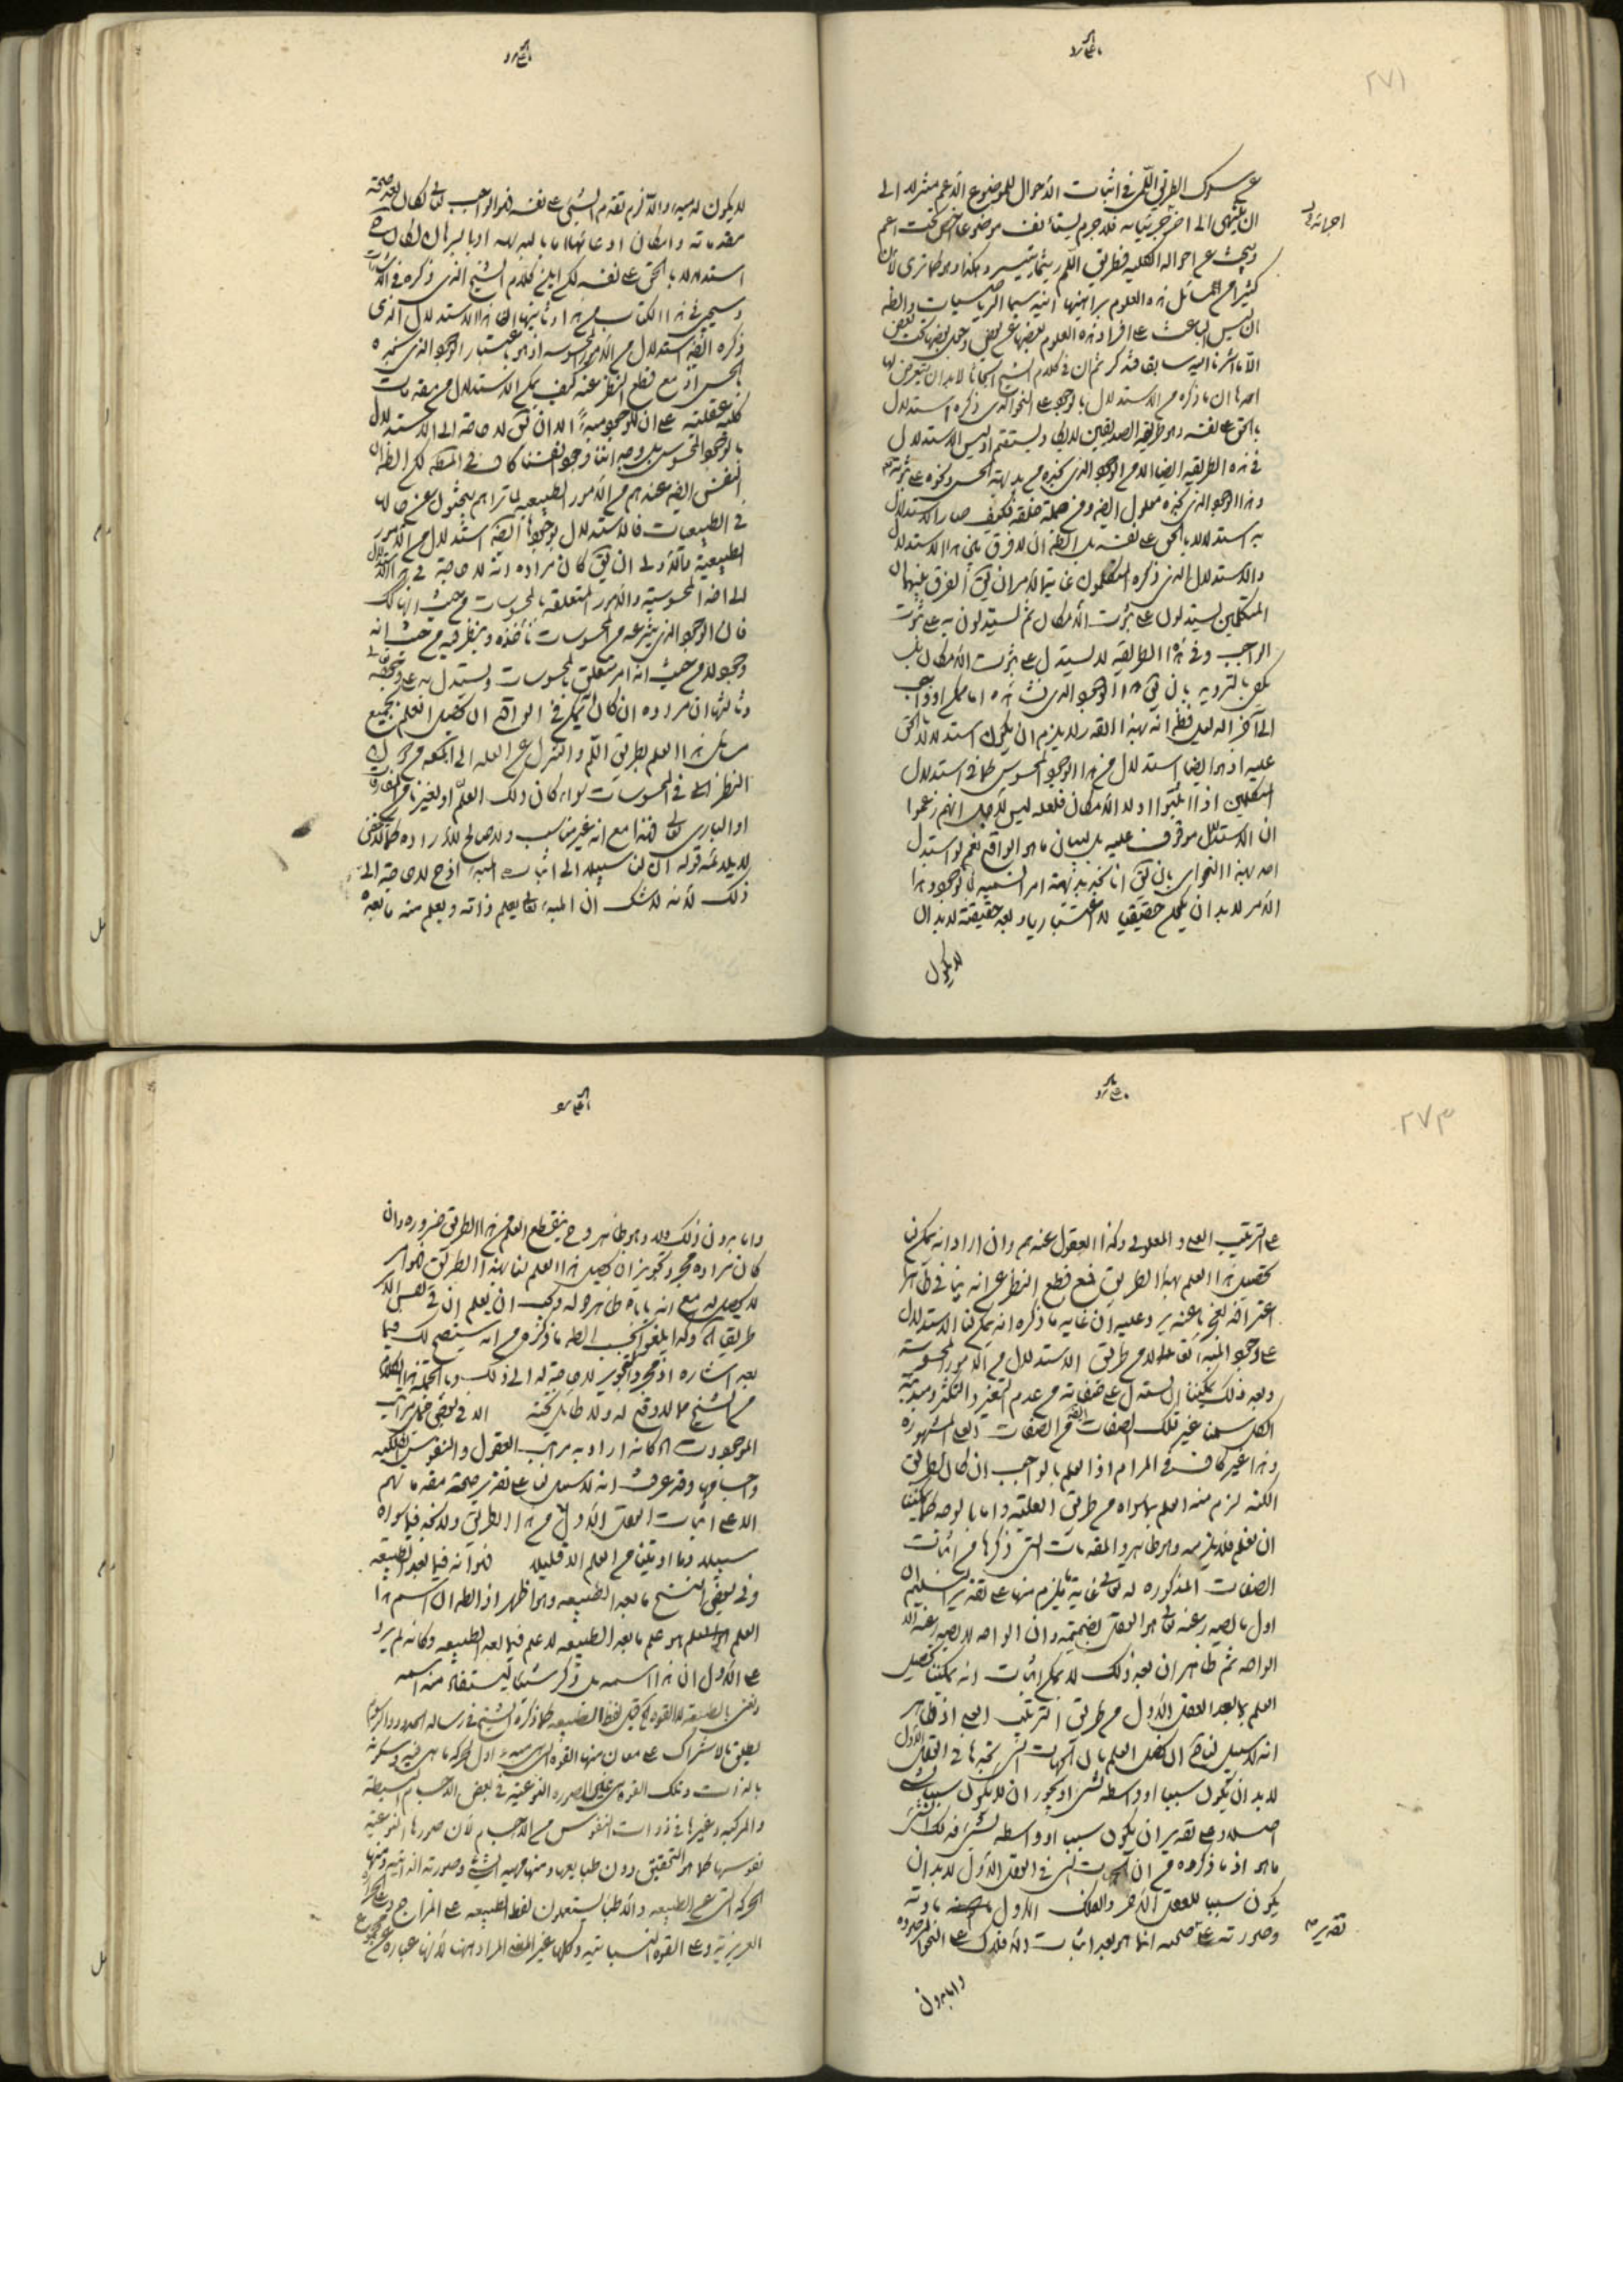 ٢٧١
عن سلوك الطريق اللمي في اثبات الاحوال للموضوع الاعم منزلا الى
ان ينتهي الى اخر جزئياته فلا جرم يستانف موضوعا اخص تحت اعم
ويبحث عن احواله فطريق اللم ربما يتيسر وهكذا وهو كما ترى لان
كثيرا من مسائل هذه العلوم براهينها انية سيما الرياضيات والظ
ان ليس الباعث على افراد هذه العلوم بعضها عن بعض وجعل بعضها تحت بعض
الا ما اشرنا اليه سابقا فتذكر ثم ان في كلام الشيخ ابحاثا لا بد ان يتعرض لها
احدها ان ما ذكره من الاستدلال بالوجود على النحو الذي ذكره استدلال
بالحق على نفسه وهو طريقة الصديقين لا يستقيم اذ ليس الاستدلال
في هذه الطريقة ايضا الا من الوجود الذي نخبره من بديهة الحس
وهذا الوجود الذي نخبره معلول ايضا ومن جملة خلقه فكيف صار الاستدلال
به استدلالا بالحق على نفسه بل الظ ان لا فرق بين هذا الاستدلال
والاستدلال الذي ذكره المتكلمون غاية الامر ان يق الفرق بينهما ان
المتكلمين يستدلون على ثبوت الامكان ثم يستدلون به على ثبوت
الواجب وفي هذا الطريقة لا يستدل على ثبوت الامكان بل
يكفي بالترديد بان يق هذا الوجود الذي نشاهده اما ممكن او واجب
الى آخر الدليل فظ انه بهذا القدر لا يلزم ان يكون استدلالا بالحق
عليه اذ هو ايضا استدلال من هذا الوجود المحسوس كما في استدلال
المتكلمين اذ اثبتوا اولا الامكان فلعله ليس لاجل انهم زعموا
ان الاستدلال موقوف عليه بل لبيان ما هو الواقع نعم لو استدل
احد بهذا النحو اي بان يق انا نخبر بديهة امرا نسميه بالوجود وهذا
الامر لا بد ان يكون حقيقيا لا اعتباريا وبعد حقيقته لا بد ان
لا يكون
لا يكون له مبدء والا لزم تقدم الشيء على نفسه فهو الواجب تعالى لكان بعد صحة
مقدماته وامكان ادعائها اما بالبديهة او بالبرهان لكان
استدلالا بالحق على نفسه لكن اين كلام الشيخ الذي ذكره في الاشارات
وسيجيء في هذا الكتاب من هذا وثانيها ان هذا الاستدلال الذي
ذكره ايضا استدلال من الامور المحسوسة اذ هو باعتبار الوجود الذي نخبره
بالحس اذ مع قطع النظر عنه كيف يمكن الاستدلال من مقدمات
كلية عقلية على ان للوجود مبدءا الا ان يق لا حاجة الى الاستدلال
بالوجود المحسوس بل وجداننا وجود انفسنا كاف في المط لكن الظ ان
النفس ايضا عندهم من الامور الطبيعية كما تراهم يبحثون عن حالها
في الطبيعيات فالاستدلال بوجودها ايضا استدلال من الامور
الطبيعية فالاولى ان يق كان مراده انه لا حاجة في هذا الاستدلال
الى اخذ المحسوسية والامور المتعلقة بالمحسوسات من حيث انها كك
فان الوجود الذي ننتزعه من المحسوسات نأخذه وننظر فيه من حيث انه
وجود لا من حيث انه امر متعلق بالمحسوسات ونستدل به على وجوده تعالى
وثالثها ان مراده ان كان انه يمكن في الواقع ان يحصل العلم بجميع
مسائل هذا العلم بطريق اللم والتنزل عن العلة الى المعلول من دون
النظر الى المحسوسات سواء كان ذلك العلم لنا او لغيرنا من المفارقات
او الباري تعالى فهذا مع انه غير مناسب ولا صالح للارادة كما لا يخفى
لا يلائمه قوله ان لنا سبيلا الى اثبات المبدء اذ ح لا حاجة الى
ذلك لانه لا شك ان المبدء تعالى يعلم ذاته ويعلم منه ما بعده
٢٧٣
على الترتيب العلي والمعلولي وكذا العقول عندهم وان اراد انه يمكن لنا
تحصيل هذا العلم بهذا الطريق فمع قطع النظر عن انه ينافي ظاهرا
اعترافه بعجزنا عنه يرد عليه ان غاية ما ذكره انه يمكن لنا الاستدلال
على وجود المبدء تعالى لا من طريق الاستدلال من الامور المحسوسة
وبعد ذلك يمكننا ان نستدل على صفاته من عدم التغير والتكثر ومبدئية
الكل سلمنا غير تلك الصفات ايضا من الصفات المشهورة
وهذا غير كاف في المرام اذ العلم بالواجب ان كان بطريق
الكنه لزم منه العلم بما سواه من طريق العلية واما بالوجه كما يمكننا
ان نعلم فلا يلزمه وهو ظاهر والمقدمات التي ذكرها من اثبات
الصفات المذكورة له تعالى غاية ما يلزم منها على تقدير التسليم ان
اول ما يصدر عنه تعالى هو العقل بضميمة وان الواحد لا يصدر عنه الا
الواحد ثم ظاهر ان بعد ذلك لا يمكن اثبات انه يمكننا تحصيل
العلم بما بعد العقل الاول من طريق الترتيب العلي اذ ظاهر
انه لا سبيل لنا الى ان نحصل العلم بان الجهات التي نجدها في العقل الاول
لا بد ان يكون سببا او واسطة لشيء او يجوز ان لا يكون سببا لشيء
اصلا وعلى تقدير ان يكون سببا او واسطة لشيء فذلك الشيء
ما هو اذ ما ذكروه من ان الجهات التي في العقل الاول لا بد ان
يكون سببا للعقل الاخر والفلك الاول مادته
وصورته على صحته انما هو بعد اثبات الافلاك على النحو
واما بدون
واما بدون ذلك فلا وهو ظاهر وح ينقطع العلم من هذا الطريق ضرورة وان
كان مراده مجرد تجويز ان يحصل هذا العلم لنا بهذا الطريق فهو امر
لا يحصل له مع انه ياباه ظاهر قوله ويجب ان يعلم ان في نفس الامر
طريقا اه وكذا يلغو بحسب الظ ما ذكره من انه سيتضح لك فيما
بعد اشارة اذ مجرد التجويز لا حاجة له الى ذلك وبالجملة هذا الكلام
من الشيخ مما لا وقع له ولا طايل تحته الا في بعض جمل مراتب
الموجودات اه كانه اراد به مراتب العقول والنفوس الفلكية
واجسامها وقد عرفت انه لا سبيل لنا على تقدير صحة مقدماتهم
الا على اثبات العقل الاول من هذا الطريق ولا نجد فيما سواه
سبيلا وما اوتينا من العلم الا قليلا قوله انه فيما بعد الطبيعة
وفي بعض النسخ ما بعد الطبيعة وهو اظهر اذ الظ ان اسم هذا
العلم هو علم ما بعد الطبيعة لا علم فيما بعد الطبيعة وكانه لم يرد
على الاول ان هذا اسمه بل ذكر شيئا يستفاد منه اسمه
ونعني بالطبيعة لا القوة اه قيل لفظ الطبيعة كما ذكره الشيخ في رسالة الحدود والرسوم
يطلق بالاشتراك على معان منها القوة التي هي مبدء اول لحركة ما هي فيه وسكونه
بالذات وتلك القوة هي عين الصورة النوعية في بعض الاجسام البسيطة
والمركبة وغيرها في ذوات النفوس من الاجسام لان صورها النوعية
نفوسها كما هو التحقيق دون طبايعها ومنها مهية الشيء وصورته الذاتية ومنها
الحركة التي عن الطبيعة والاطباء يستعملون لفظ الطبيعة على المزاج وعلى الحرارة
الغريزية وعلى القوة النباتية وكلها غير المعنى المراد ههنا لانها عبارة عن